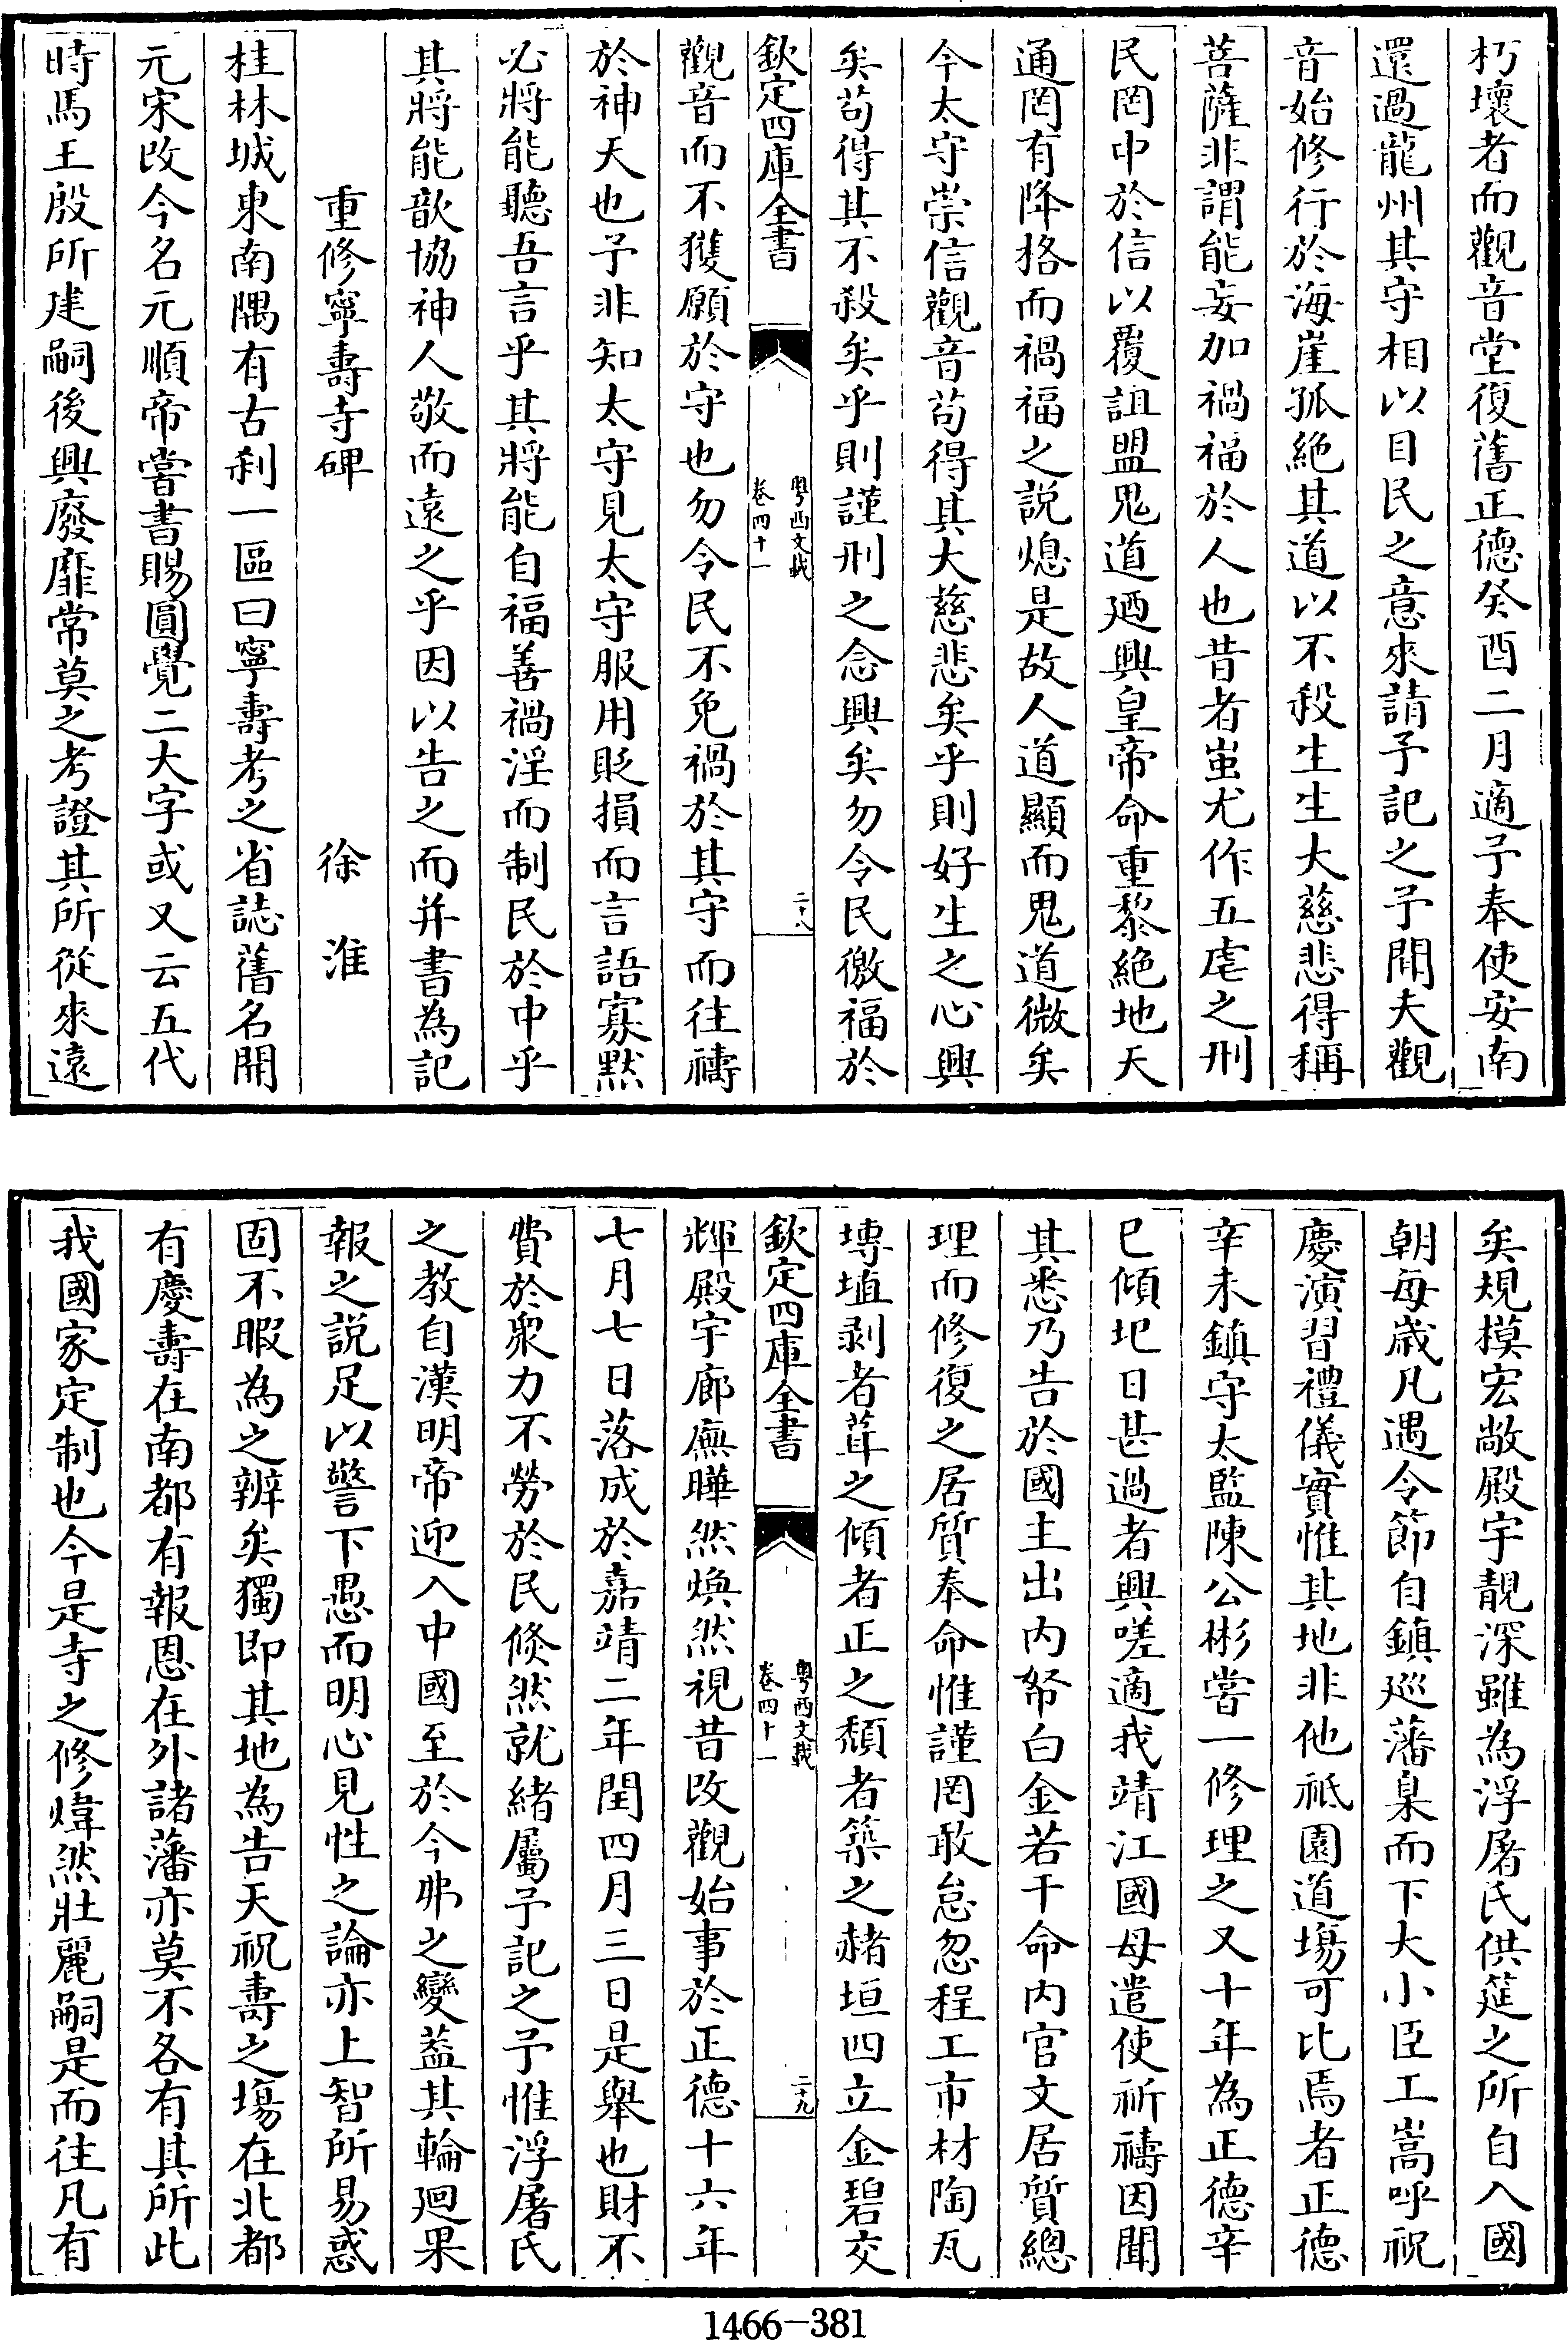 朽壞者而觀音堂復舊正德癸酉二月適予奉使安南
還過龍州其守相以目民之意來請予記之予聞夫觀
音始修行於海崖孤絶其道以不殺生生大慈悲得稱
菩薩非謂能妄加禍福於人也昔者蚩尤作五虐之刑
民罔中於信以覆詛盟鬼道廼興皇帝命重黎絶地天
通罔有降格而禍福之説熄是故人道顯而鬼道微矣
今太守崇信觀音苟得其大慈悲矣乎則好生之心興
矣苟得其不殺矣乎則謹刑之念興矣勿令民徼福於
欽定四庫全書
粤西文載
卷四十一
二十八
觀音而不獲願於守也勿令民不免禍於其守而往禱
於神天也予非知太守見太守服用貶損而言語寡黙
必將能聽吾言乎其將能自福善禍淫而制民於中乎
其將能歆協神人敬而遠之乎因以告之而并書為記
重修寧壽寺碑　徐淮
桂林城東南隅有古刹一區曰寧壽考之省誌舊名開
元宋改今名元順帝嘗書賜圓覺二大字或又云五代
時馬王殷所建嗣後興廢靡常莫之考證其所從來遠
矣規模宏敞殿宇靚深雖為浮屠氏供筵之所自入國
朝每歲凡遇令節自鎮廵藩臬而下大小臣工嵩呼祝
慶演習禮儀實惟其地非他祗園道塲可比焉者正德
辛未鎮守太監陳公彬嘗一修理之又十年為正德辛
巳傾圮日甚過者興嗟適我靖江國母遣使祈禱因聞
其悉乃告於國主出内帑白金若干命内官文居質總
理而修復之居質奉命惟謹罔敢怠忽程工市材陶瓦
塼埴剥者葺之傾者正之頽者築之赭垣四立金碧交
欽定四庫全書
粤西文載
卷四十一
二十九
輝殿宇廊廡曄然煥然視昔改觀始事於正德十六年
七月七日落成於嘉靖二年閏四月三日是舉也財不
費於衆力不勞於民倏然就緒屬予記之予惟浮屠氏
之教自漢明帝迎入中國至於今弗之變葢其輪廻果
報之説足以警下愚而明心見性之論亦上智所易惑
固不暇為之辨矣獨即其地為告天祝壽之塲在北都
有慶壽在南都有報恩在外諸藩亦莫不各有其所此
我國家定制也今是寺之修煒然壯麗嗣是而往凡有
1466-381